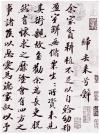 歸去來辭并序
余家貧耕植不足以自給幼稚
盈室瓶無儲粟生生所資未見
其術親故多勸余為長吏脫
然有懷求之靡途會有四方之事
諸侯以惠愛為德家叔以